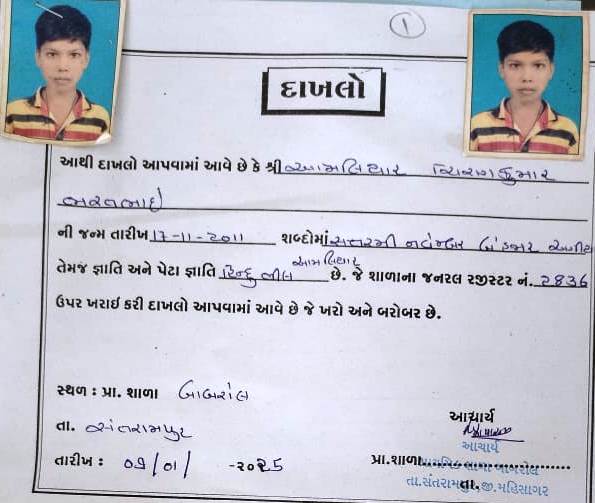 1
દાખલો
આથી દાખલો આપવામાં આવે છે કે શ્રી આમલિયાર ચિરાગકુમાર
ભરતભાઇ
ની જન્મ તારીખ 17-11-2011 શબ્દોમાં સત્તરમી નવેમ્બર બે હજાર અગીયાર
આમલિયાર
તેમજ જ્ઞાતિ અને પેટા જ્ઞાતિ હિન્દુ ભીલ છે. જે શાળાના જનરલ રજીસ્ટર નં. 2836
ઉપર ખરાઇ કરી દાખલો આપવામાં આવે છે જે ખરો અને બરોબર છે.
સ્થળ : પ્રા. શાળા બાબરોલ
આચાર્ય
તા. સંતરામપુર
આચાર્ય
તારીખ : 09/01/-૨૦૨5
પ્રા.શાળા
તા.સંતરામપુર જી.મહિસાગર